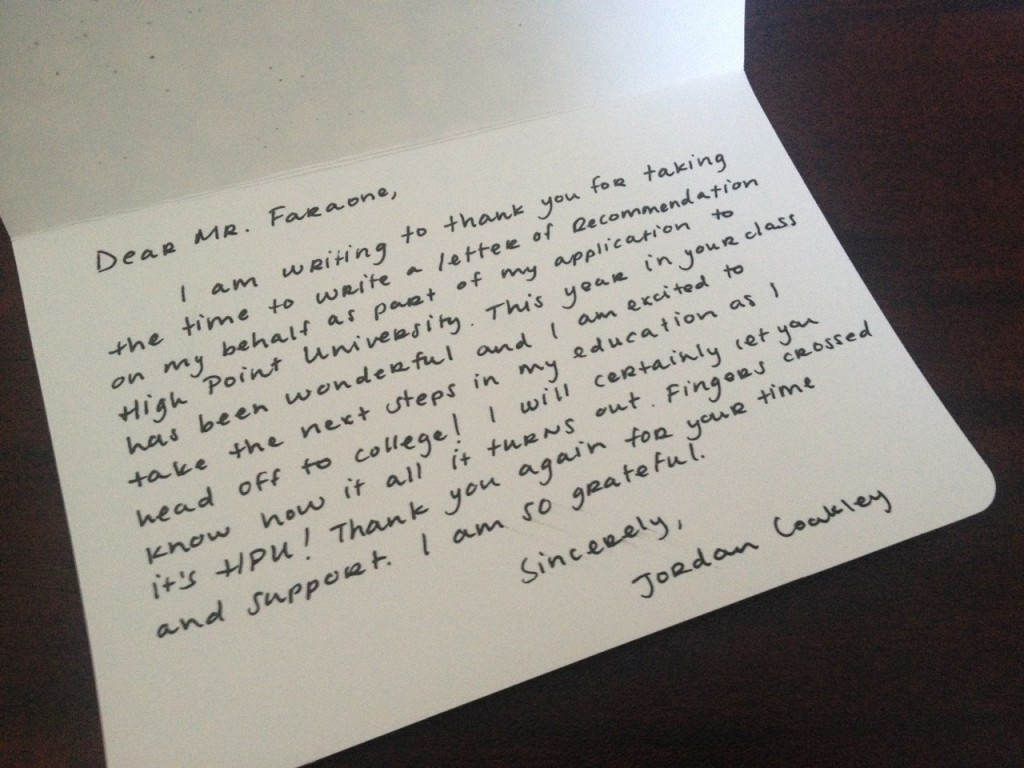 Dear Mr. Faraone,
I am writing to thank you for taking
the time to write a letter of recommendation
on my behalf as part of my application to
High Point University. This year in your class
has been wonderful and I am excited to
take the next steps in my education as I
head off to college! I will certainly let you
know how it all it turns out. Fingers crossed
it's HPU! Thank you again for your time
and support. I am so grateful.
Sincerely,
Jordan Coakley